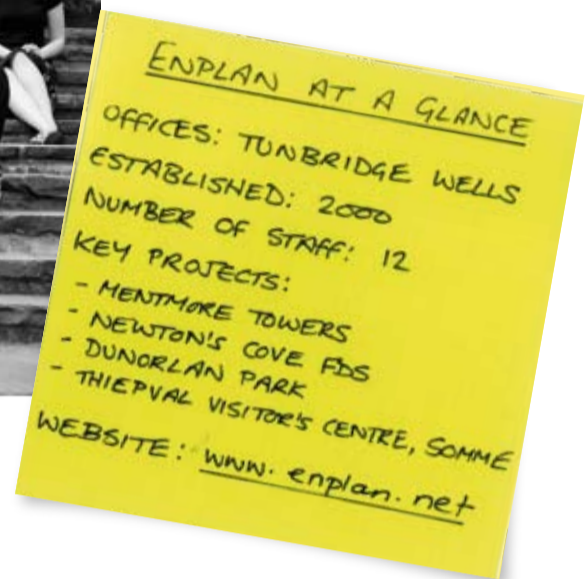 ENPLAN AT A GLANCE
OFFICES: TUNBRIDGE WELLS
ESTABLISHED: 2000
NUMBER OF STAFF: 12
KEY PROJECTS:
- MENTMORE TOWERS
- NEWTON'S COVE FDS
- DUNORLAN PARK
- THIEPVAL VISITOR'S CENTRE, SOMME
WEBSITE: www.enplan.net